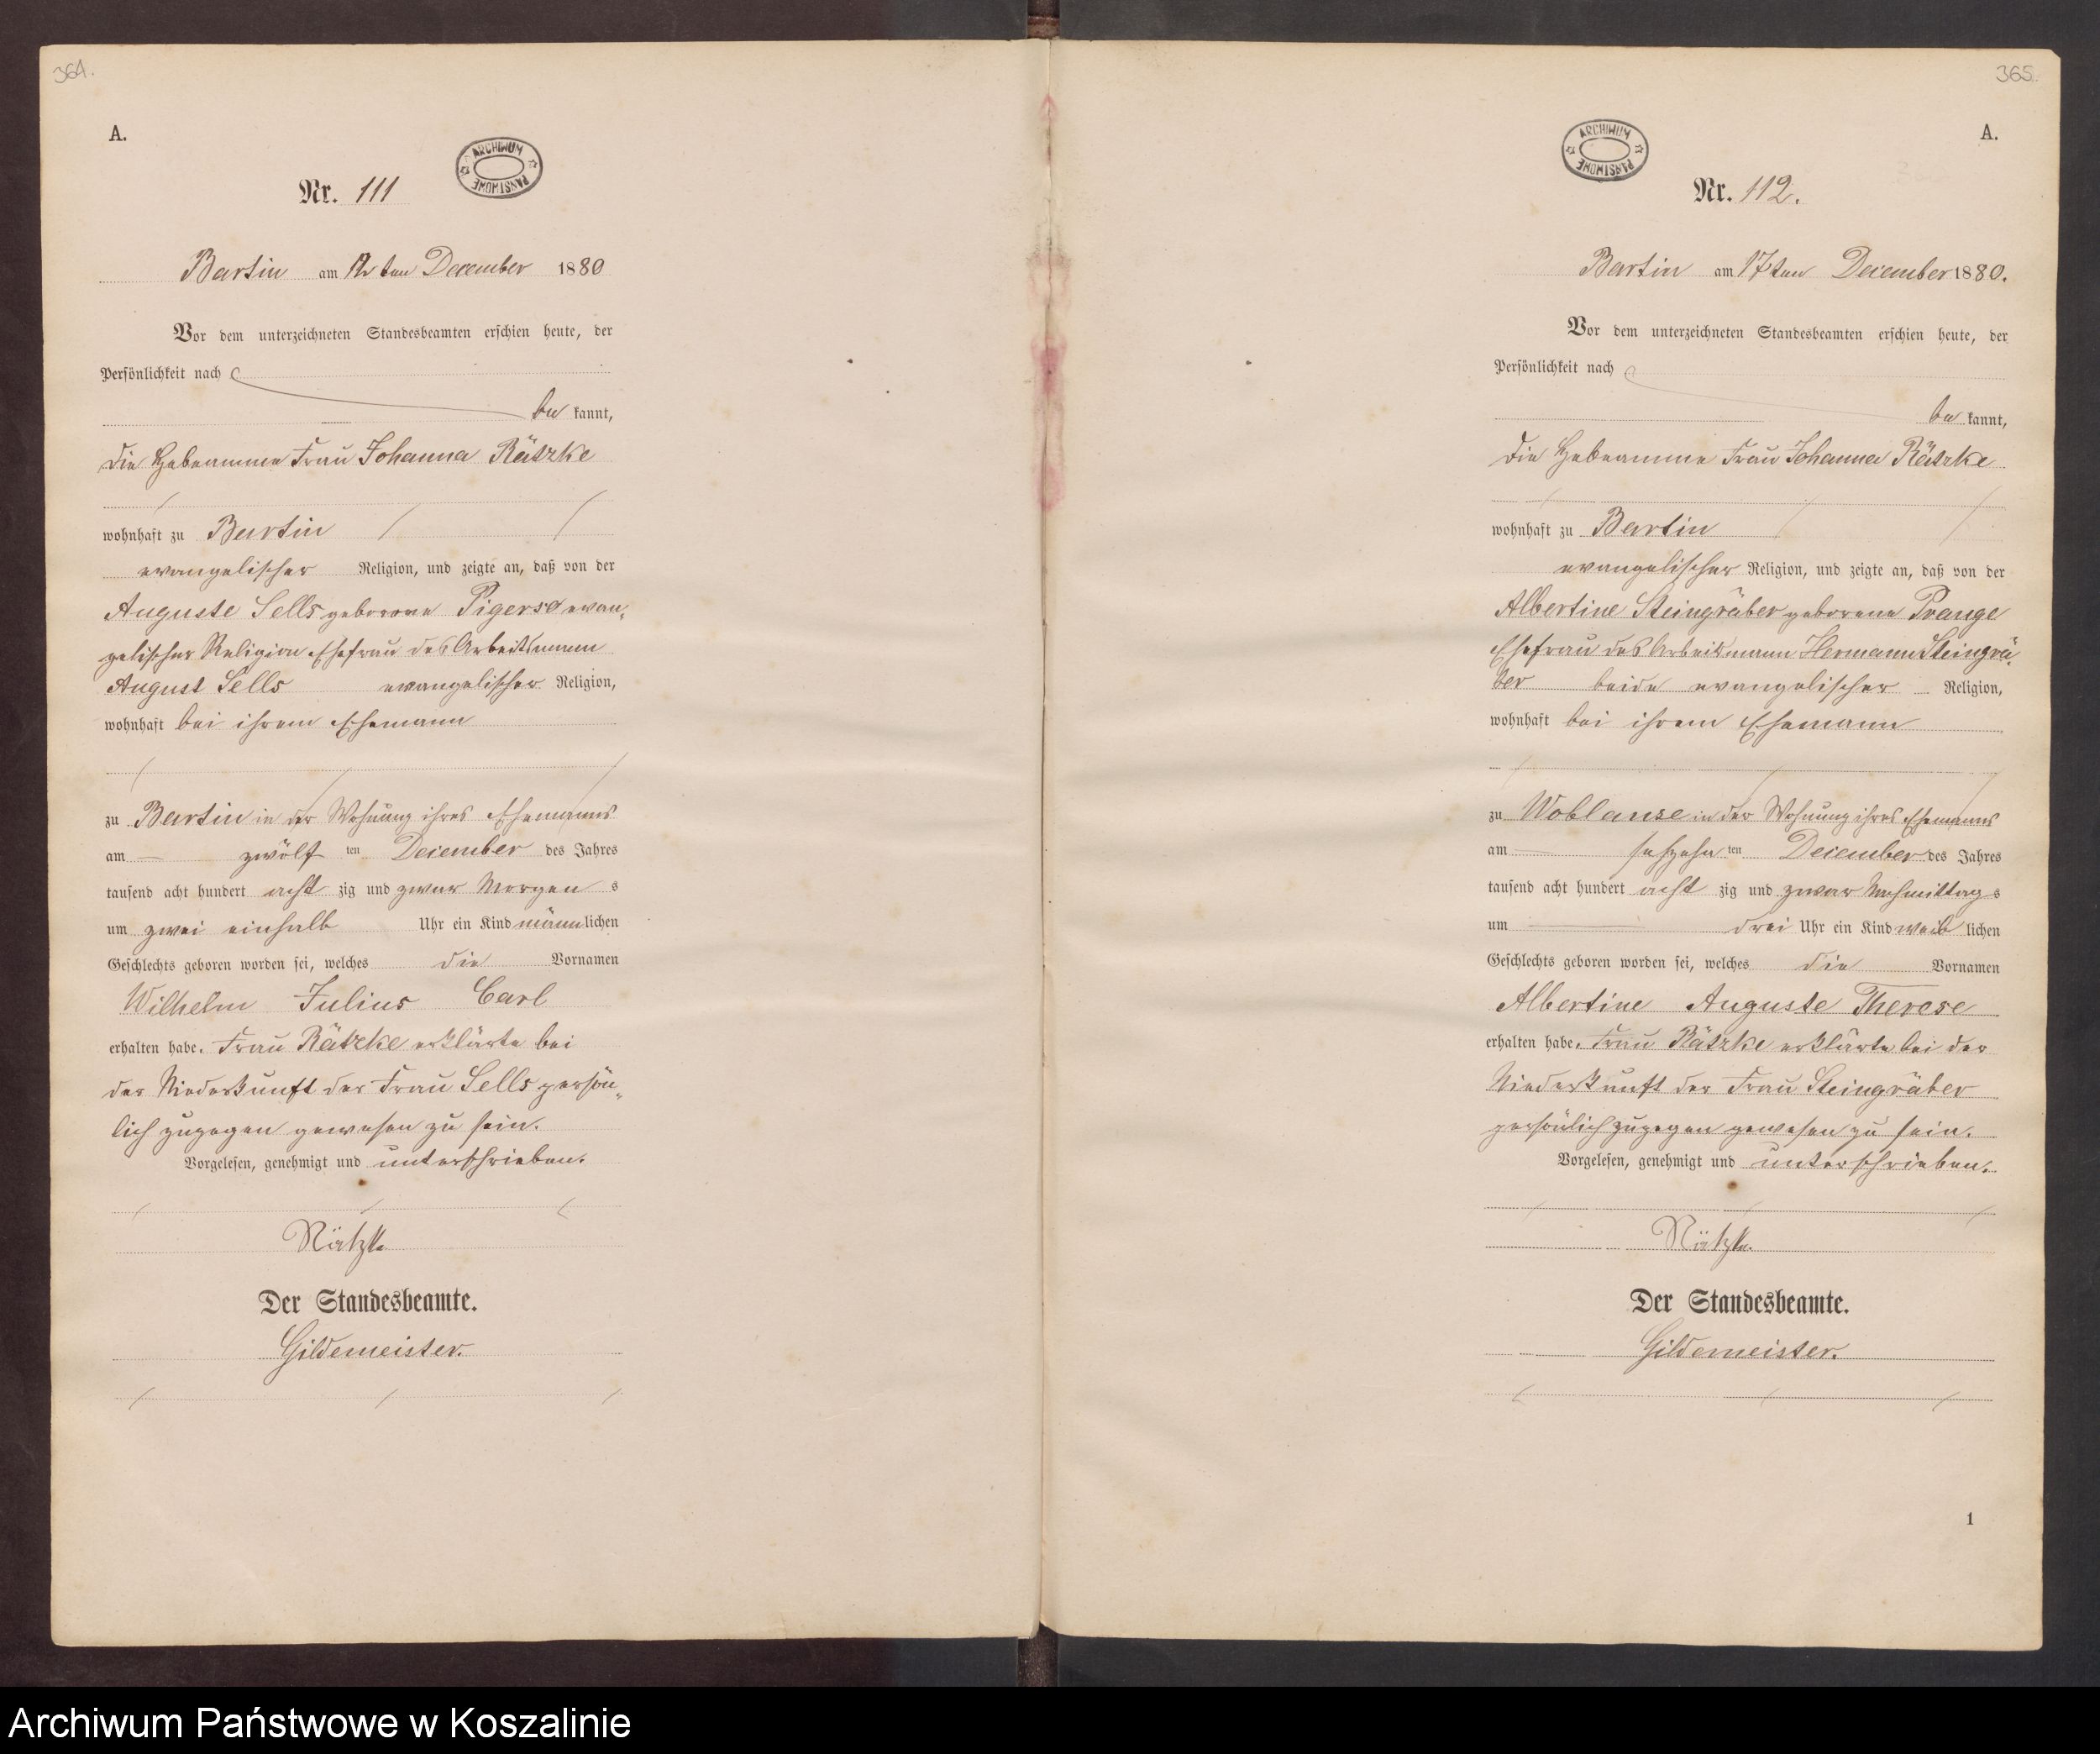 364.
A.
ARCHIWUM PAŃSTWOWE
Nr. 111
Bartin am ten December 1880
Vor dem unterzeichneten Standesbeamten erschien heute, der
Persönlichkeit nach
be kannt,
die Hebeamme Frau Johanna Rätzke
wohnhaft zu Bartin
evangelischer Religion, und zeigte an, daß von der
Auguste Sells geborene evan-
gelischer Religion Ehefrau des Arbeitsmann
August Sells evangelischer Religion,
wohnhaft bei ihrem Ehemann
zu Bartin in der Wohnung ihres Ehemanns
am — zwölf ten December des Jahres
tausend acht hundert acht zig und zwar Morgen s
um zwei einhalb Uhr ein Kind männlichen
Geschlechts geboren worden sei, welches die Vornamen
Wilhelm Julius Carl
erhalten habe. Frau Rätzke erklärte bei
der Niederkunft der Frau Sells persön-
lich zugegen gewesen zu sein.
Vorgelesen, genehmigt und unterschrieben.
Rätzke
Der Standesbeamte.
Gildemeister.
365.
A.
ARCHIWUM PAŃSTWOWE
Nr. 112.
Bartin am 17ten December 1880.
Vor dem unterzeichneten Standesbeamten erschien heute, der
Persönlichkeit nach
be kannt,
die Hebeamme Frau Johanna Rätzke
wohnhaft zu Bartin
evangelischer Religion, und zeigte an, daß von der
Albertine Steingräber geborene Prange
Ehefrau des Arbeitsmann Hermann Steingrä-
ber beide evangelischer Religion,
wohnhaft bei ihrem Ehemann
zu Woblanse in der Wohnung ihres Ehemanns
am — sechzehn ten December des Jahres
tausend acht hundert acht zig und zwar Nachmittag s
um — drei Uhr ein Kind weib lichen
Geschlechts geboren worden sei, welches die Vornamen
Albertine Auguste Therese
erhalten habe. Frau Rätzke erklärte bei der
Niederkunft der Frau Steingräber
persönlich zugegen gewesen zu sein.
Vorgelesen, genehmigt und unterschrieben.
Rätzke.
Der Standesbeamte.
Gildemeister.
1
Archiwum Państwowe w Koszalinie